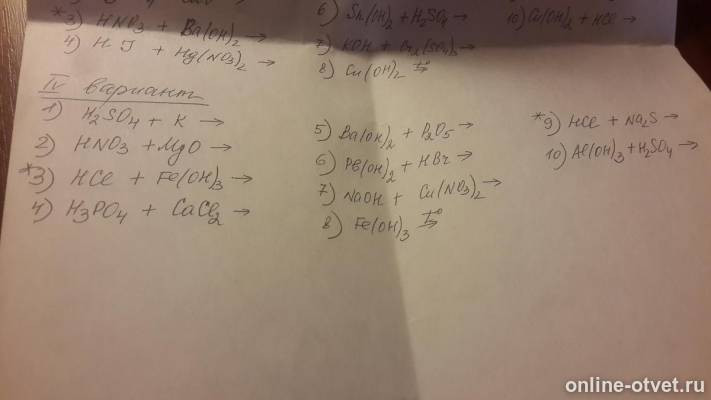 *3) HNO3 + Ba(OH)2 →
4) HJ + Hg(NO3)2 →
6) Sn(OH)2 + H2SO4 →
7) KOH + Cr2(SO4)3 →
8) Cu(OH)2 t° →
10) Cu(OH)2 + HCl →
IV вариант
1) H2SO4 + K →
2) HNO3 + MgO →
*3) HCl + Fe(OH)3 →
4) H3PO4 + CaCl2 →
5) Ba(OH)2 + P2O5 →
6) Pb(OH)2 + HBr →
7) NaOH + Cu(NO3)2 →
8) Fe(OH)3 t° →
*9) HCl + Na2S →
10) Al(OH)3 + H2SO4 →
online-otvet.ru